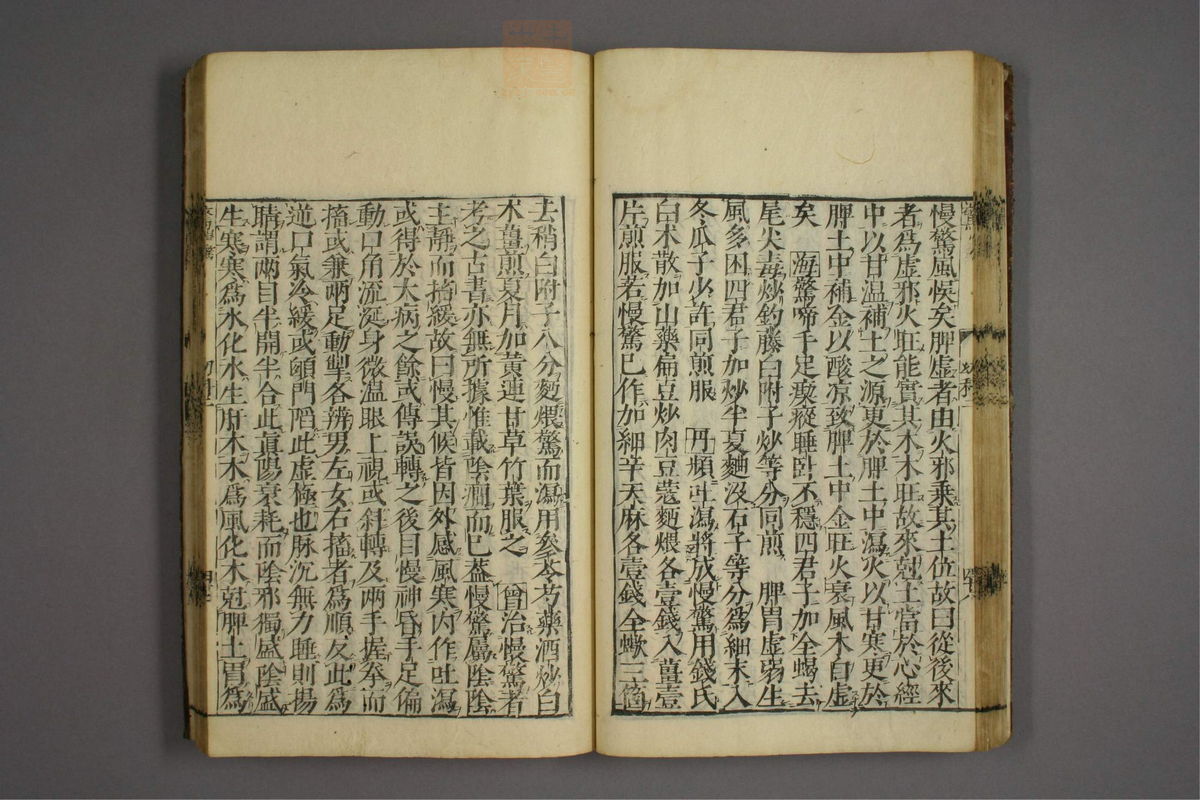 慢驚風候矣脾虛者由火邪乘其土位故曰從後來
者爲虛邪火旺能實其木木旺故來尅土當於心經
中以甘温補土之源更於脾土中瀉火以甘寒更於
脾土中補金以酸凉致脾土中金旺火衰風木自虛
矣　海驚啼手足瘈瘲睡卧不穩四君子加全蝎去
尾尖毒炒釣藤白附子炒等分同煎　脾胃虛弱生
風多困四君子加炒半夏麯沒石子等分爲細末入
冬瓜子少許同煎服　丹頻吐瀉將成慢驚用錢氏
白术散加山藥扁豆炒肉荳蔻麪煨各壹錢入薑壹
片煎服若慢驚已作加細辛天麻各壹錢全蠍三箇
去稍白附子八分麪煨驚而瀉用參苓芍藥酒炒白
术薑煎夏月加黃連甘草竹葉服之　曾治慢驚者
考之古書亦無所據惟載陰癇而已葢慢驚屬陰陰
主靜而搐緩故曰慢其候皆因外感風寒内作吐瀉
或得於大病之餘或傳誤轉之後目慢神昏手足偏
動口角流涎身微温眼上視或斜轉及兩手握拳而
搐或兼兩足動掣各辨男左女右搐者爲順反此爲
逆口氣冷緩或顖門䧟此虛極也脉沉無力睡則揚
睛謂兩目半開半合此眞陽衰耗而陰邪獨盛陰盛
生寒寒爲水化水生肝木木爲風化木尅脾土胃爲